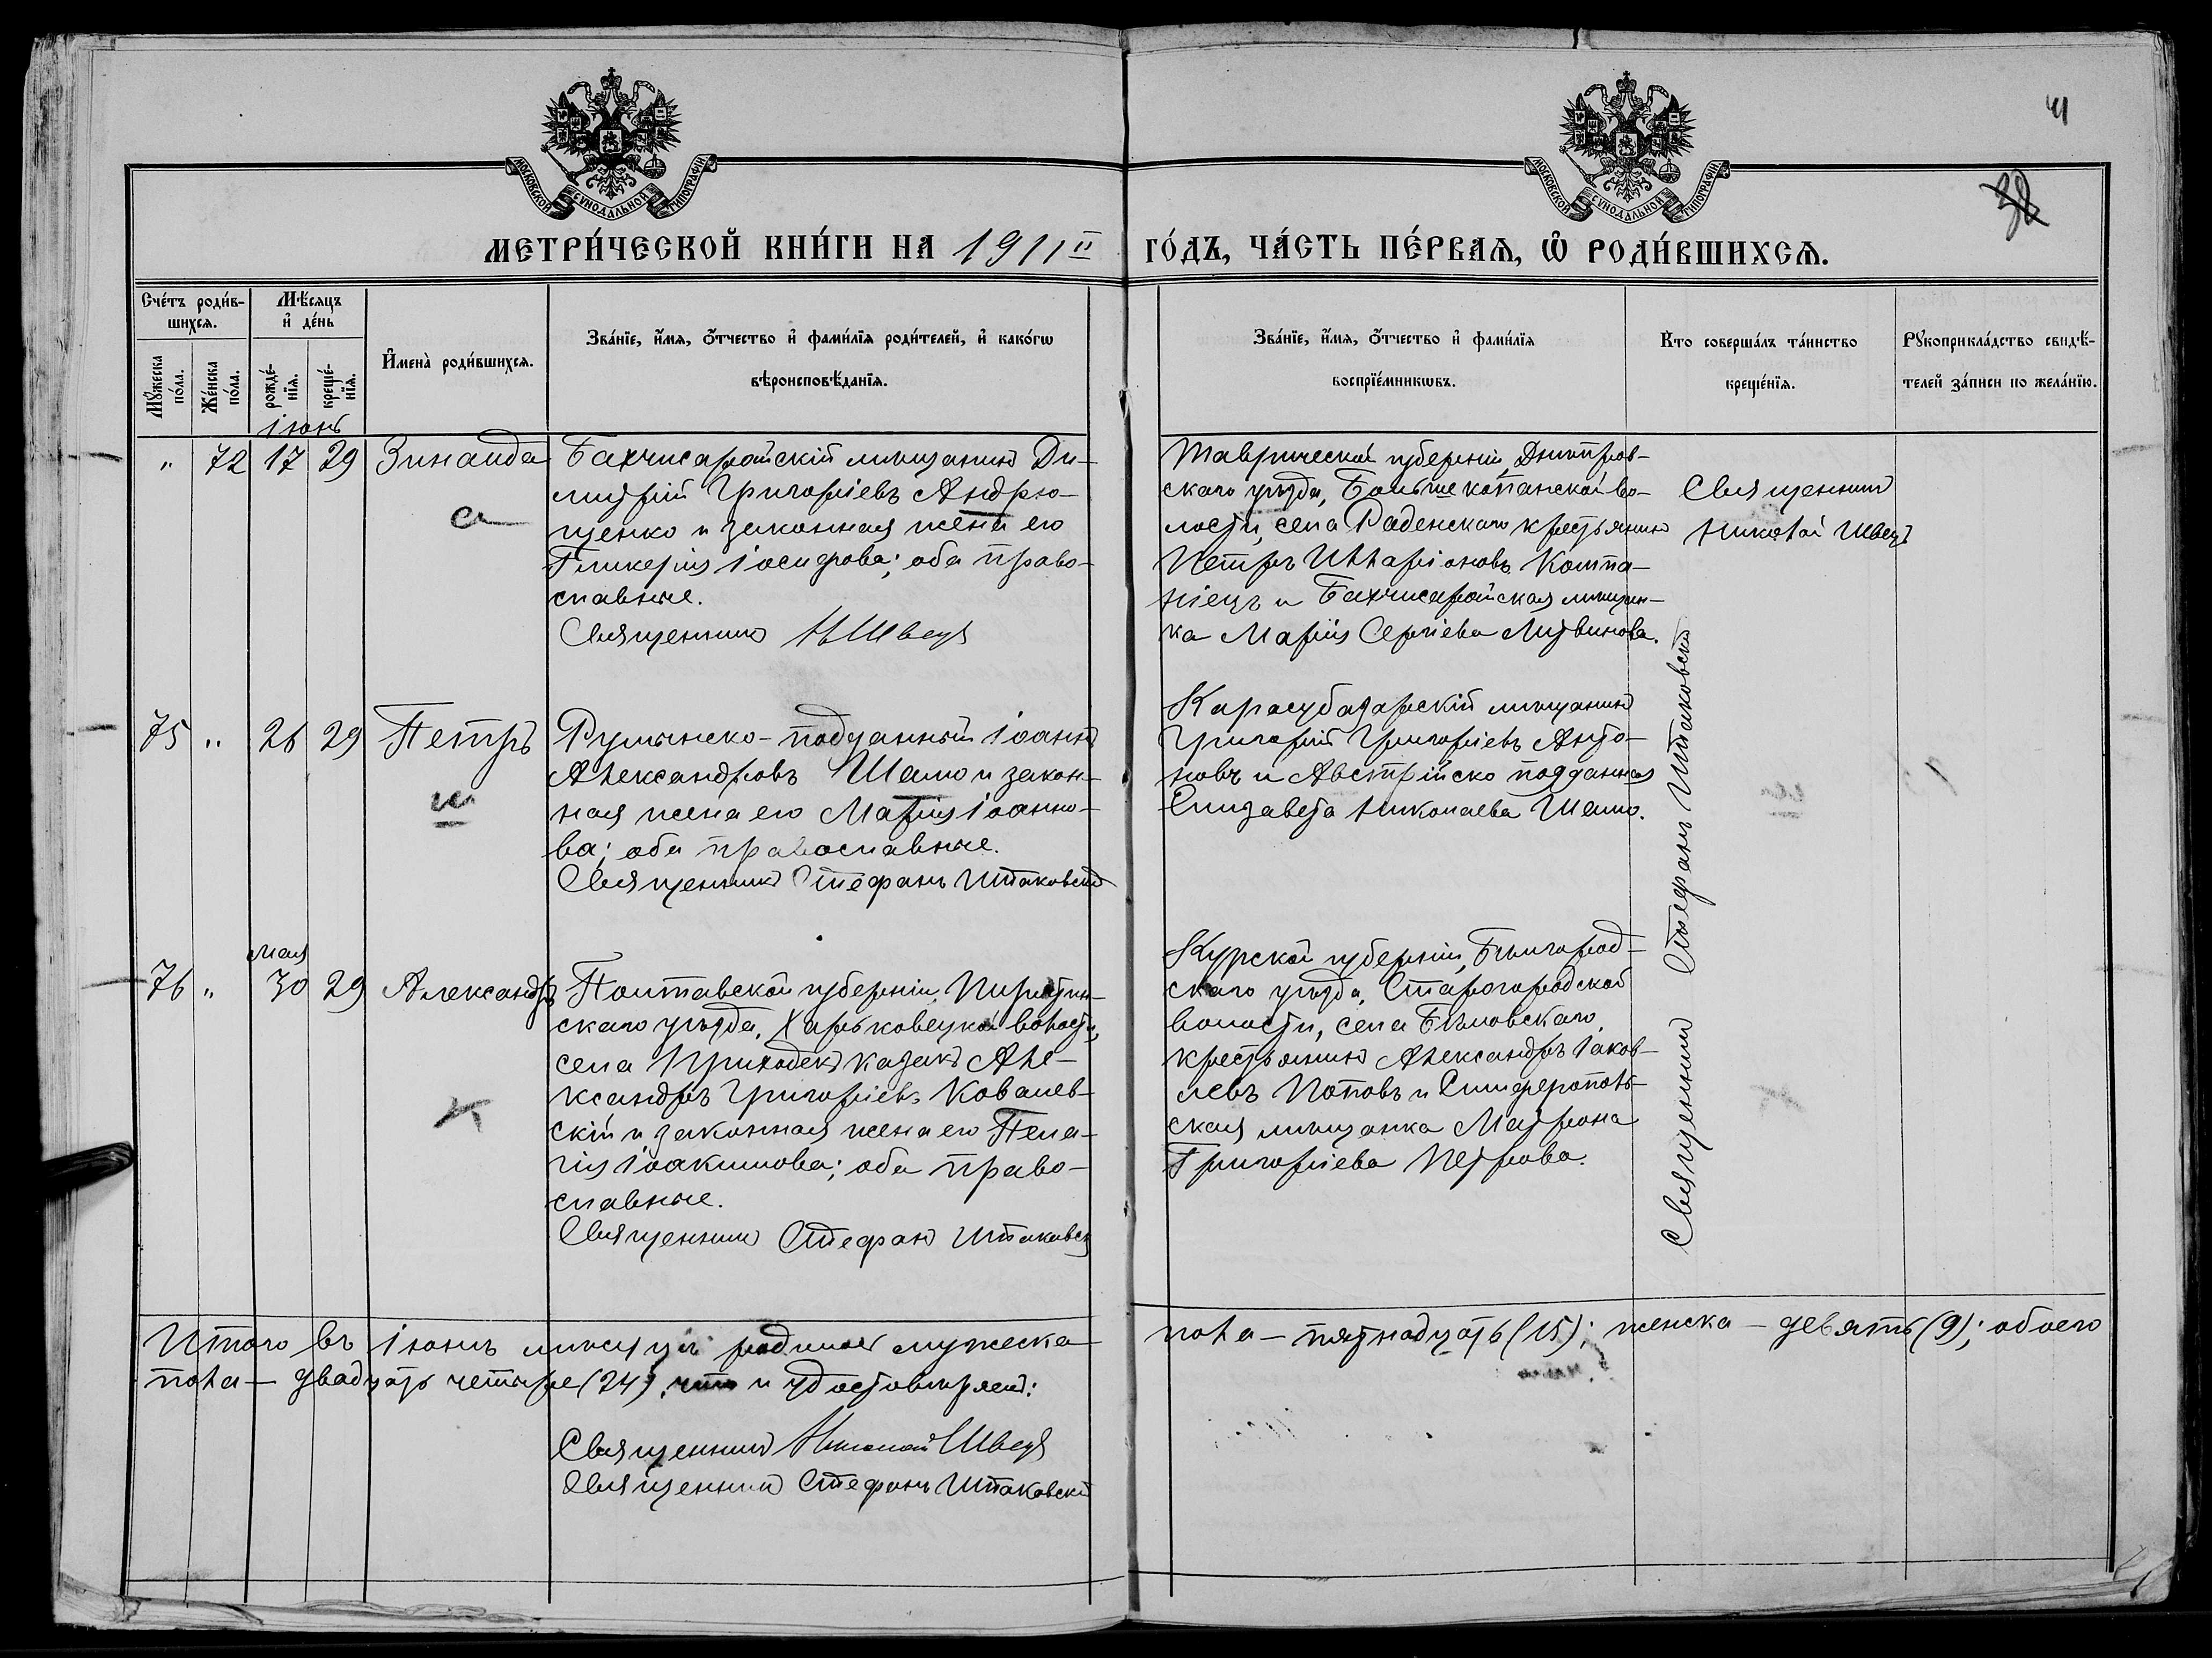 41
38
МОСКОВСКОЙ СѴНОДАЛЬНОЙ ТИПОГРАФІИ
МОСКОВСКОЙ СѴНОДАЛЬНОЙ ТИПОГРАФІИ
МЕТРИ́ЧЕСКОЙ КНИ́ГИ НА 1911й ГО́ДЪ, ЧА́СТЬ ПЕ́РВАѦ, Ѿ РОДИ́ВШИХСѦ.
Сче́тъ роди́в-
шихсѧ.
Мꙋжеска по́ла.
Же́нска по́ла.
Мѣ́сѧцъ
и҆ де́нь
рожде́-
нїѧ.
креще́-
нїѧ.
И҆мена̀ роди́вшихсѧ.
Зва́нїе, и҆́мѧ, ѻ҆́тчество и҆ фами́лїѧ роди́телей, и҆ како́гѡ
вѣроисповѣ́данїѧ.
Зва́нїе, и҆́мѧ, ѻ҆́тчество и҆ фами́лїѧ
воспрїе́мникѡвъ.
Кто̀ соверша́лъ та́инство
креще́нїѧ.
Рꙋкоприкла́дство свидѣ́-
телей за́писи по жела́нїю.
Іюнь
" 72 17 29 Зинаида
Бахчисарайскій мѣщанинъ Ди-
митрій Григоріевъ Андрю-
щенко и законная жена его
Гликерія Іосифова; оба право-
славные.
Священникъ Н Швецъ
Таврической губерніи, Днѣпров-
скаго уѣзда, Больше копанской во-
лости, села Раденскаго крестьянинъ
Петръ Илларіоновъ Компа-
ніецъ и Бахчисарайская мѣщан-
ка Марія Сергіева Литвинова.
Священникъ
Николай Швецъ
75 " 26 29 Петръ
Румынско-подданный Іоаннъ
Александровъ Шамо и закон-
ная жена его Марія Іоанно-
ва; оба православные.
Священникъ Стефанъ Шпаковскій
Карасубазарскій мѣщанинъ
Григорій Григоріевъ Анто-
новъ и Австрійско подданная
Елизавета Николаева Шамо.
Священникъ Стефанъ Шпаковскій
мая
76 " 30 29 Александръ
Полтавской губерніи, Пирятин-
скаго уѣзда, Харьковецкой волости,
села Приходекъ казакъ Але-
ксандръ Григоріевъ Ковалев-
скій и законная жена его Пела-
гія Іоакимова; оба право-
славные.
Священникъ Стефанъ Шпаковск
Курской губерніи, Бѣлгород-
скаго уѣзда, Старогородской
волости, села Бѣловскаго,
крестьянинъ Александръ Іаков-
левъ Поповъ и Симферополь-
ская мѣщанка Матрона
Григоріева Петрова.
Итого въ Іюнь мѣсяцѣ родилось мужеска
пола — пятнадцать (15); женска — девять (9); обоего
пола — двадцать четыре (24), что и удостовѣряемъ:
Священникъ Николай Швецъ
Священникъ Стефанъ Шпаковскій